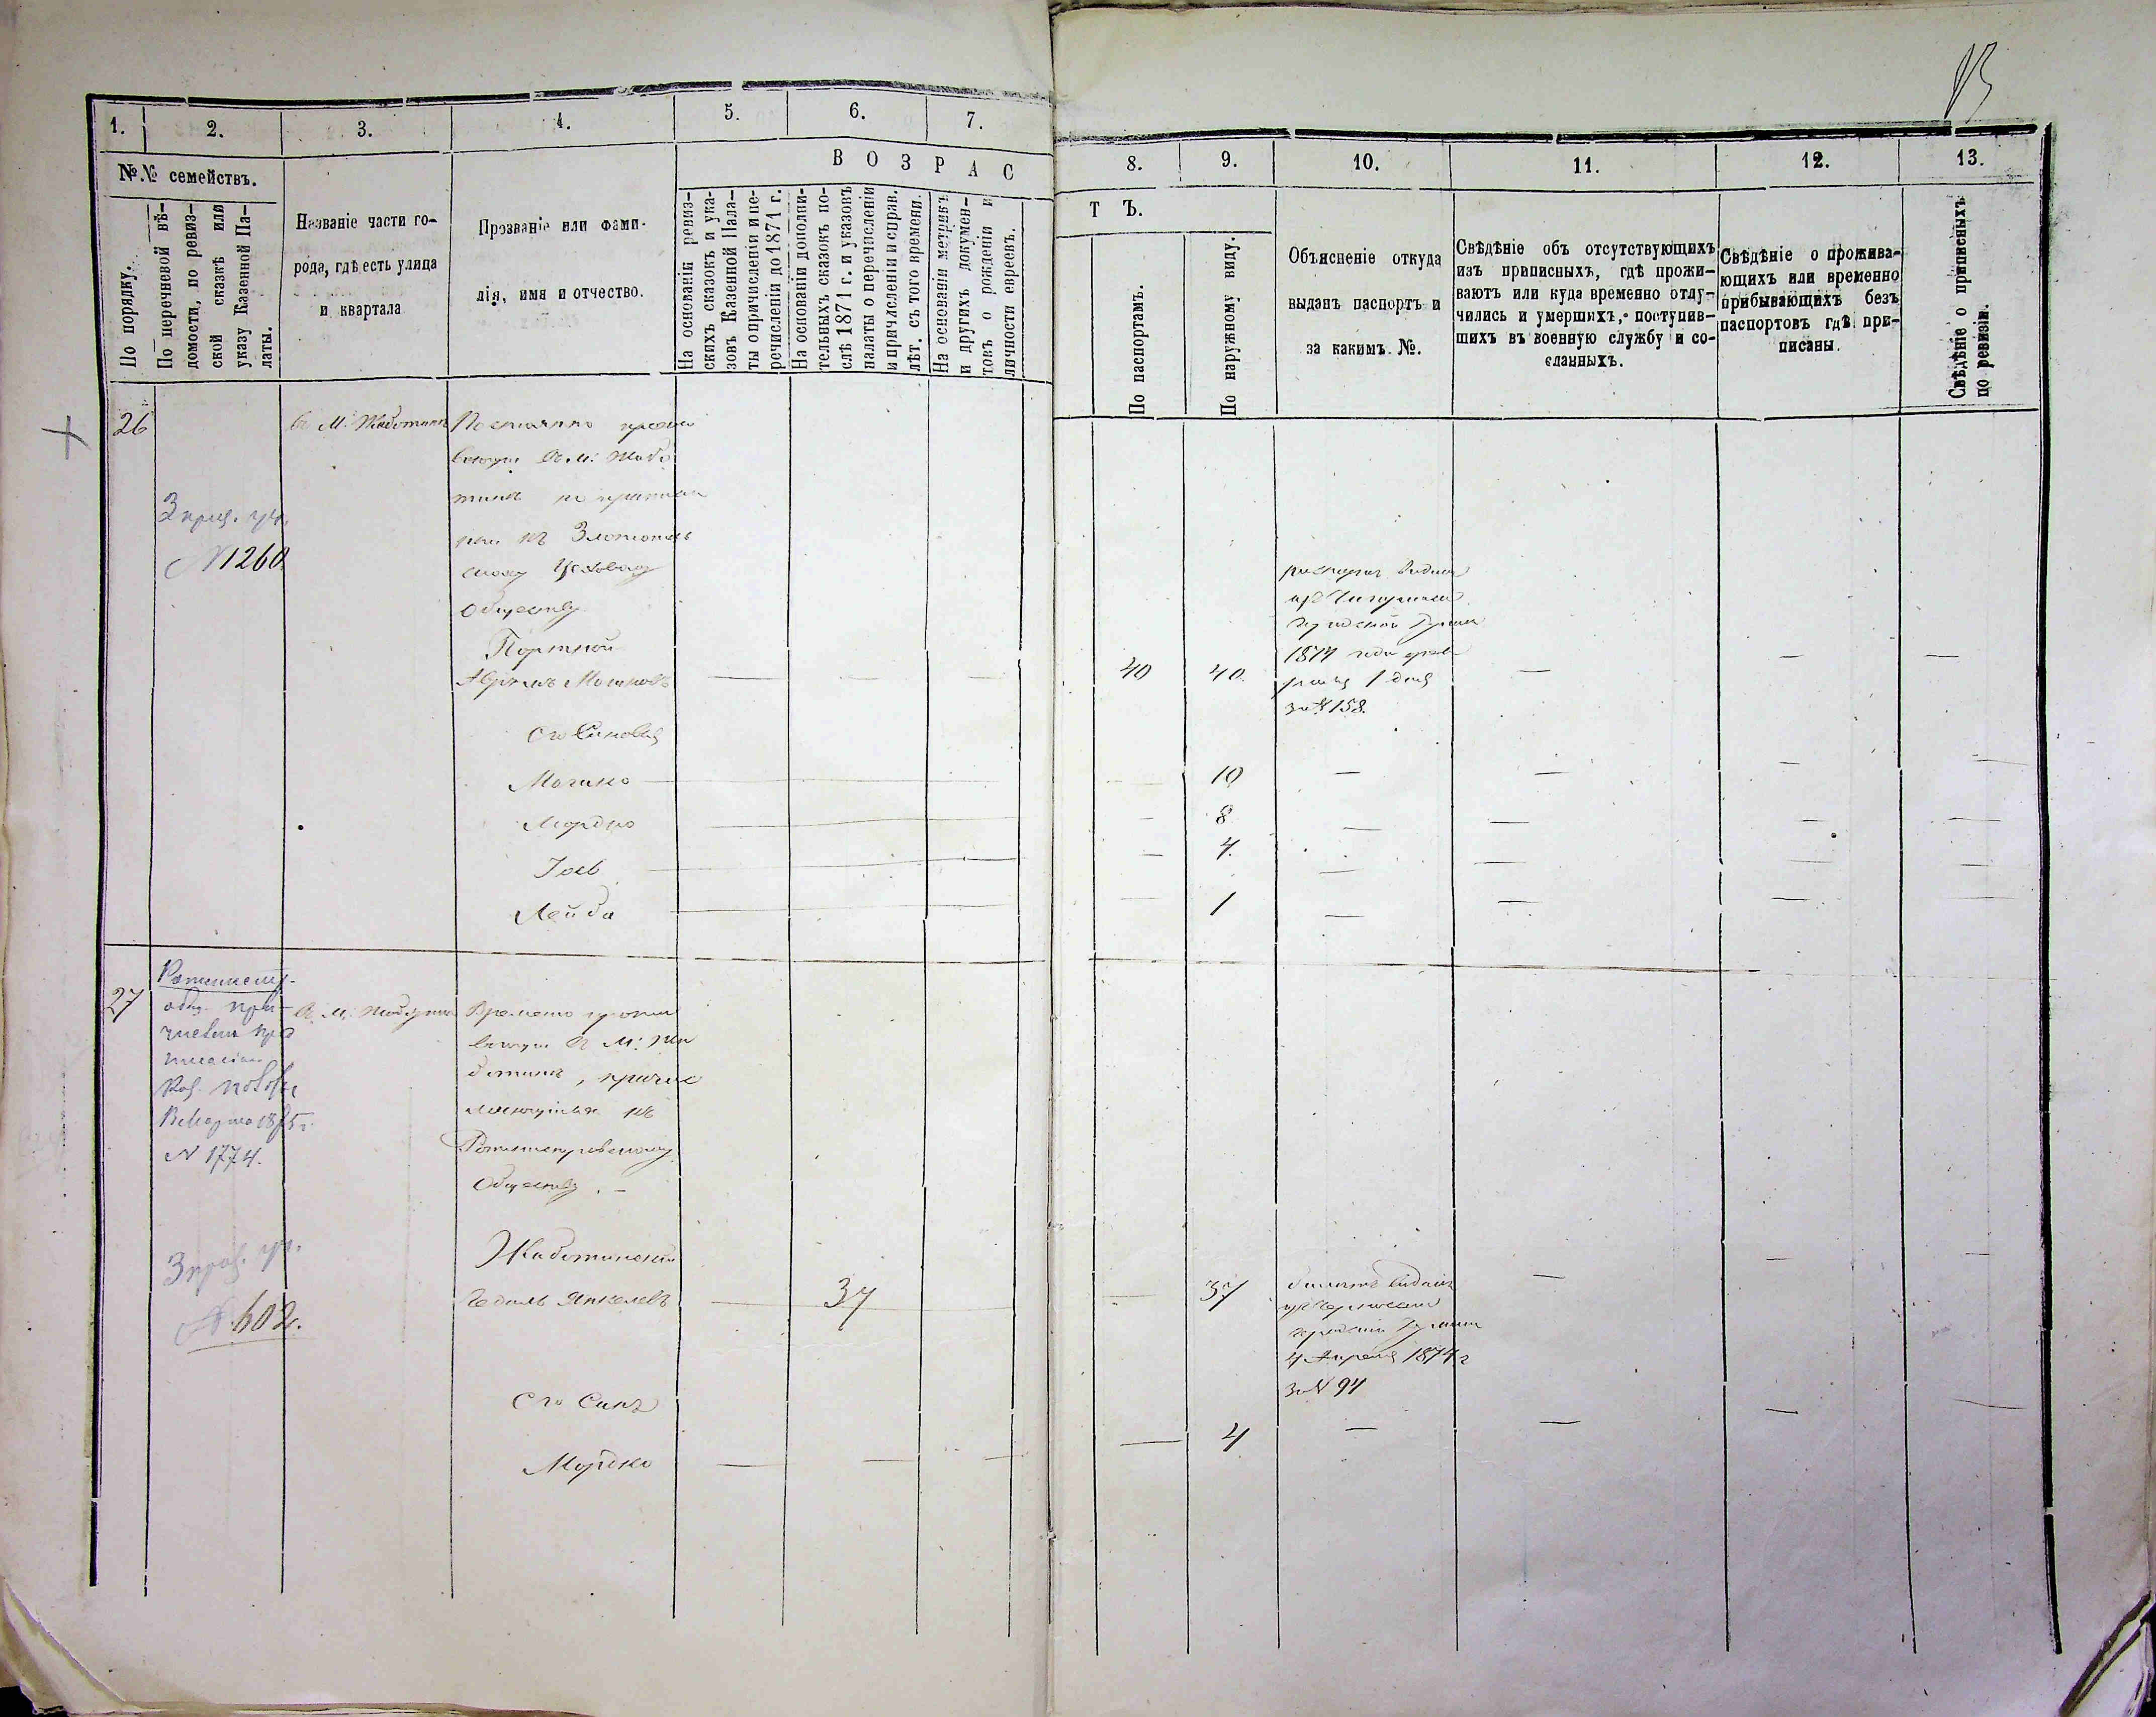 13
1.
2.
3.
4.
5.
6.
7.
8.
9.
10.
11.
12.
13.
№№ семействъ.
По порядку.
По перечневой вѣ-
домости, по ревиз-
ской сказкѣ или
указу Казенной Па-
латы.
Названіе части го-
рода, гдѣ есть улица
и квартала
Прозваніе или фами-
лія, имя и отчество.
ВОЗРАСТЪ.
На основаніи ревиз-
скихъ сказокъ и ука-
зовъ Казенной Пала-
ты о причисленіи и пе-
речисленіи до 1871 г.
На основаніи дополни-
тельныхъ сказокъ по-
слѣ 1871 г. и указовъ
палаты о перечисленіи
и причисленіи и справ.
лѣт. съ того времени.
На основаніи метрикъ
и другихъ докумен-
токъ о рожденіи и
личности евреевъ.
По паспортамъ.
По наружному виду.
Объясненіе откуда
выданъ паспортъ и
за какимъ №.
Свѣдѣніе объ отсутствующихъ
изъ приписныхъ, гдѣ прожи-
ваютъ или куда временно отлу-
чились и умершихъ, поступив-
шихъ въ военную службу и со-
сланныхъ.
Свѣдѣніе о прожива-
ющихъ или временно
прибывающихъ безъ
паспортовъ гдѣ при-
писаны.
Свѣдѣніе о приписныхъ
по ревизіи.
26
3 приз. уч.
№ 1260
в М. Жаботинѣ
Постоянно прожи
вающи в М: Жабо
тинѣ но приписан
ны къ Златополь
скому
Обществу
Портной
Абрамъ Мошковъ
40
40
паспортъ видан
изъ Чигиринской
Городской Думы
1874 года
1 дня
за № 158.
Его Синовья
Мошко
10
Мордко
8
Іос
4
Лейба
1
27
общ. при-
№ 1774.
3 приз. уч.
№ 602.
в М. Жаботинѣ
Временно прожи
вающи в М: Жа
ботинѣ, причис
ляющійся къ
Ротмистровскому
Обществу. –
Жаботинский
Янкелевъ
37
37
видан
Городской Думы
4 Апреля 1874 г
за № 94
Его Синъ
Мордко
4